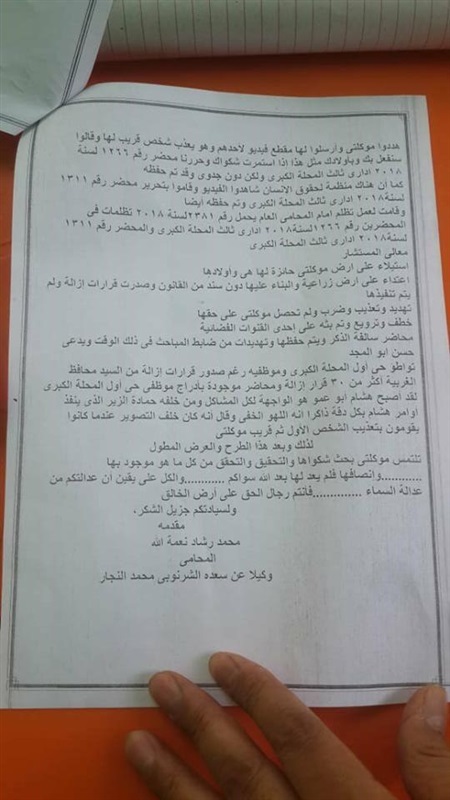 هددوا موكلتى وأرسلوا لها مقطع فيديو لاحدهم وهو يعذب شخص قريب لها وقالوا
سنفعل بك وبأولادك مثل هذا اذا استمرت شكواك وحررنا محضر رقم ١٢٦٦ لسنة
٢٠١٨ ادارى ثالث المحلة الكبرى ولكن دون جدوى وقد تم حفظه
كما أن هناك منظمة لحقوق الانسان شاهدوا الفيديو وقاموا بتحرير محضر رقم ١٣١١
لسنة ٢٠١٨ ادارى ثالث المحلة الكبرى وتم حفظه أيضا
وقامت لعمل تظلم امام المحامى العام يحمل رقم ٢٣٨١ لسنة ٢٠١٨ تظلمات فى
المحضرين رقم ١٢٦٦ لسنة ٢٠١٨ ادارى ثالث المحلة الكبرى والمحضر رقم ١٣١١
لسنة ٢٠١٨ ادارى ثالث المحلة الكبرى
معالى المستشار
استيلاء على ارض موكلتى حائزة لها هى واولادها
اعتداء على ارض زراعية والبناء عليها دون سند من القانون وصدرت قرارات إزالة ولم
يتم تنفيذها
تهديد وتعذيب وضرب ولم تحصل موكلتى على حقها
خطف وترويع وتم بثه على إحدى القنوات الفضائية
محاضر سالفة الذكر ويتم حفظها وتهديدات من ضابط المباحث فى ذلك الوقت ويدعى
حسن ابو المجد
تواطؤ حى أول المحلة الكبرى وموظفيه رغم صدور قرارات إزالة من السيد محافظ
الغربية أكثر من ٣٠ قرار إزالة ومحاضر موجودة بأدراج موظفى حى أول المحلة الكبرى
لقد اصبح هشام ابو عمو هو الواجهة لكل المشاكل ومن خلفه حمادة الزير الذى ينفذ
أوامر هشام بكل دقة ذاكرا انه اللهو الخفى وقال انه كان خلف التصوير عندما كانوا
يقومون بتعذيب الشخص الأول ثم قريب موكلتى
لذلك وبعد هذا الطرح والعرض المطول
تلتمس موكلتى بحث شكواها والتحقيق والتحقق من كل ما هو موجود بها
............وانصافها فلم يعد لها بعد الله سواكم ............والكل على يقين أن عدالتكم من
عدالة السماء ..............فأنتم رجال الحق على أرض الخالق
ولسيادتكم جزيل الشكر،
مقدمه
محمد رشاد نعمة الله
المحامى
وكيلا عن سعده الشرنوبى محمد النجار